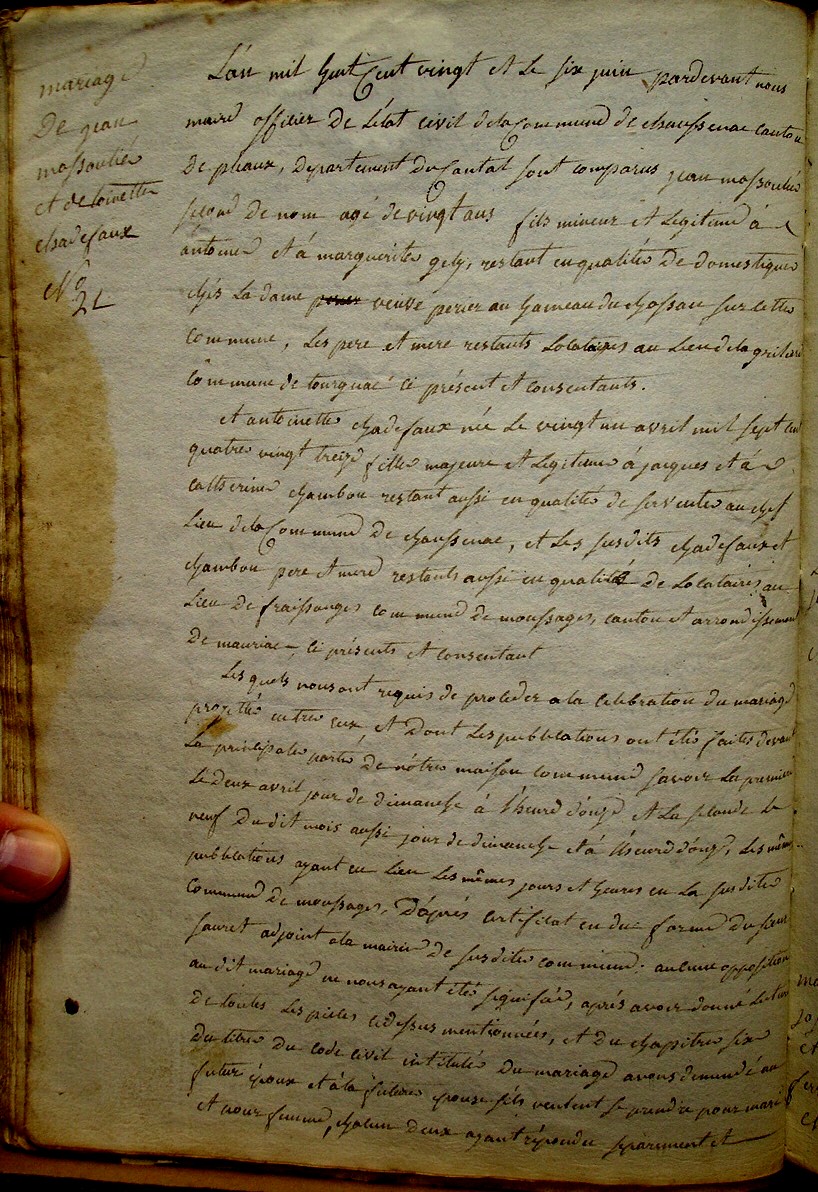 mariage
De jean
massoulié
et de toinette
chadefaux
N° 21
L'an mil huit Cent vingt et Le six juin pardevant nous
maire officier De L'état civil dela Commune de chaussenac canton
De pleaux, département Du Cantal sont comparus jean massoulié
segond de nom agé de vingt ans fils mineur et Legitime à
antoine et à marguerite gely, restant en qualité De domestique
chés La dame veuve perier au hameau du chassan sur cette
commune, Les pere et mere restants Locataires au Lieu dela
commune de tourniac ci présent et consentants.
et antoinette chadefaux née Le vingt un avril mil sept cent
quatre vingt treize fille majeure et Legitime à jacques et à
catherine chambon restant aussi en qualité de servente au chef
Lieu dela Commune De chaussenac, et Les susdits chadefaux et
chambon pere et mere restants aussi en qualité De Locataires au
Lieu De fraissanges commune de moussages, canton et arrondissement
De mauriac ci présents et consentant
Les quels nous ont requis de proceder a la celebration du mariage
projetté entre eux, et Dont Les publications ont étés faites devant
La principale porte De nôtre maison commune savoir La premiere
Le deux avril jour de dimanche à L'heure d'onze et La seconde Le
neuf Du dit mois aussi jour de dimanche et à L'heure d'onze, Les mêmes
publications ayant eu Lieu Les mêmes jours et heures en La susdite
Commune De moussages, D'après certificat en due forme Du sieur
sauret adjoint a la mairie De susdite commune. aucune opposition
au dit mariage ne nous ayant étés signifiée, aprés avoir donné Lecture
De toutes Les pieces cidessus mentionnées, et Du chapitre six
Du titre Du code civil intitulé Du mariage avons demandé au
futur époux et à la future epouse s'ils veulent se prendre pour mari
et pour femme, chacun deux ayant répondu séparement et